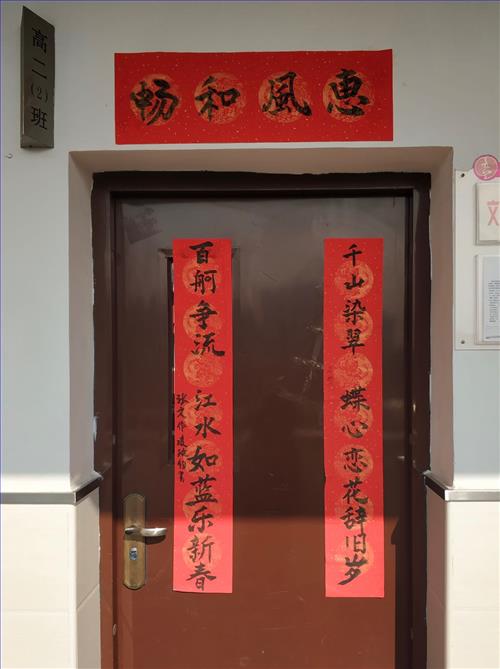 高二(2)班
惠風和畅
千山染翠 蝶心恋花辞旧岁
百舸争流 江水如蓝乐新春